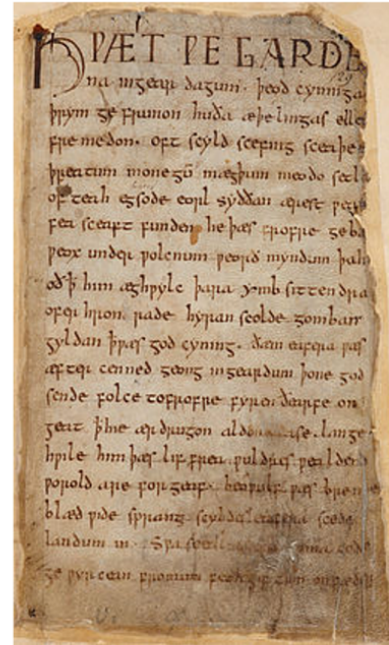 HǷÆT ǷE GARDE
na ingear dagum. þeod cyninga
þrym ge frunon huða æþelingas elle
fremedon. oft scyld scefing sceaþe
þreatum monegū mægþum meodo setl
of teah egsode eorl syððan ærest ƿear
fea sceaft funden he þæs frofre geba
ƿeox under ƿolcnum ƿeorð myndum þah
oðꝥ him æghƿylc þara ymb sittendra
ofer hron rade hyran scolde gomban
gyldan ꝥ ƿæs god cyning. ðæm eafera ƿæs
æfter cenned geong ingeardum þone god
sende folce tofrofre fyren ðearfe on
geat ꝥ hie ær drugon aldor ase. lange
hƿile him þæs lif frea ƿuldres ƿealdend
ƿorold are forgeaf. beoƿulf ƿæs breme
blæd ƿide sprang scyldes eafera scede
landum in. Sƿa sceal guma gode
ge ƿyrcean fromum feoh giftum on fæder